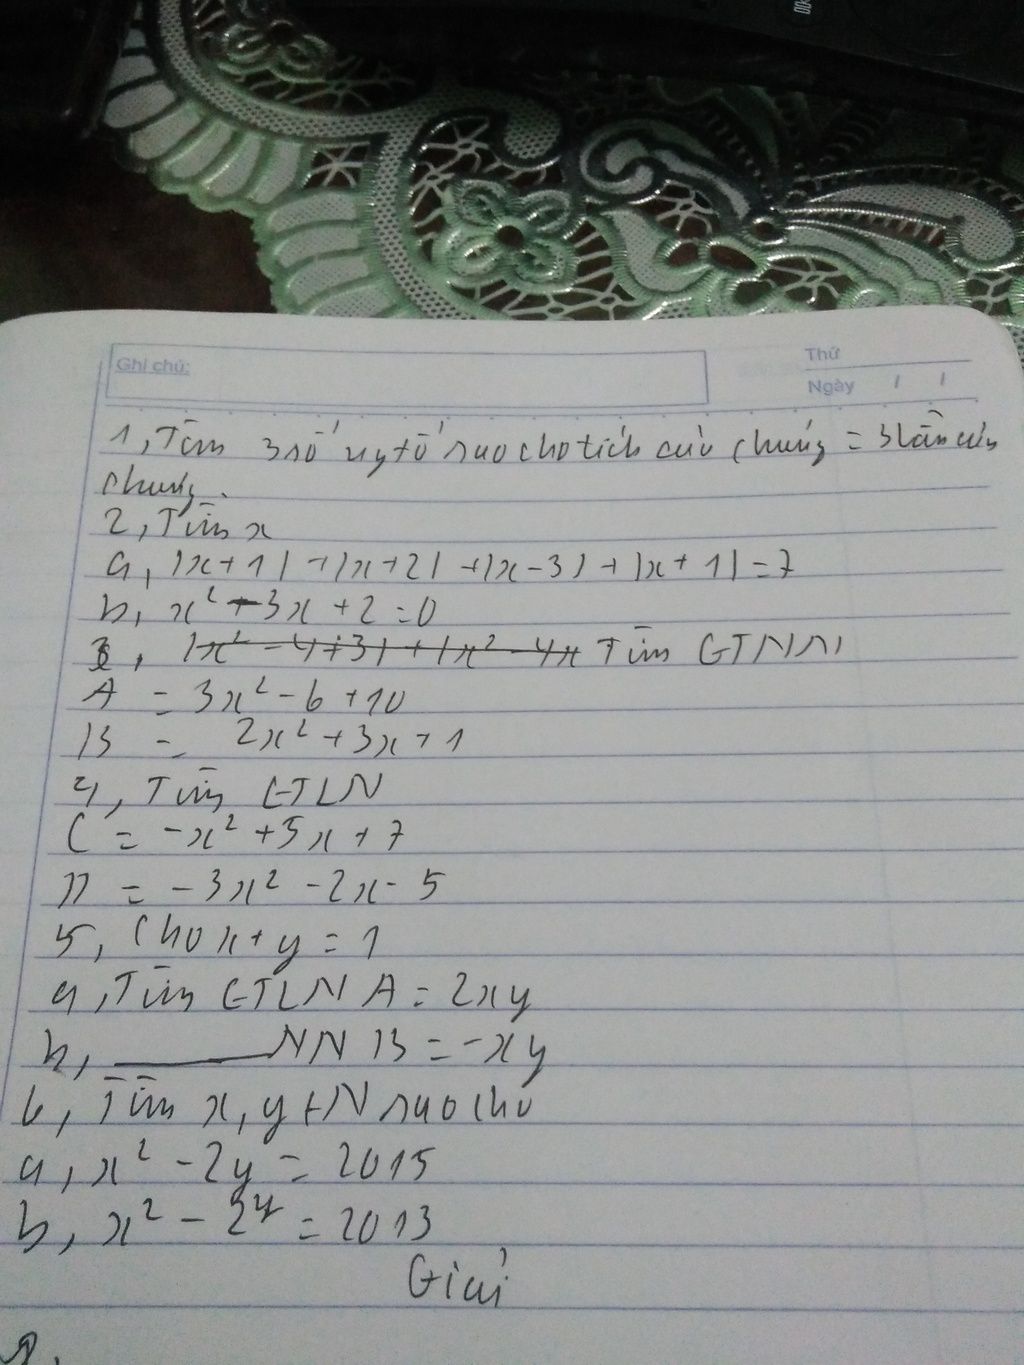 Ghi chú:
Thứ
Ngày / /
1, Tìm 3 số ngtố sao cho tích của chúng = 3 lần của
chúng.
2, Tìm x
a, |x+1| + |x+2| + |x-3| + |x+1| = 7
b, x² - 3x + 2 = 0
3, |x² - 4+3| + |x² - 4x Tìm GTNN
A = 3x² - 6 + 10
B = 2x² + 3x + 1
4, Tìm GTLN
C = -x² + 5x + 7
D = -3x² - 2x - 5
5, Cho x + y = 1
a, Tìm GTLN A = 2xy
b, ______ NN B = -xy
6, Tìm x, y ∈ N sao cho
a, x² - 2y = 2015
b, x² - 2^y = 2013
Giải